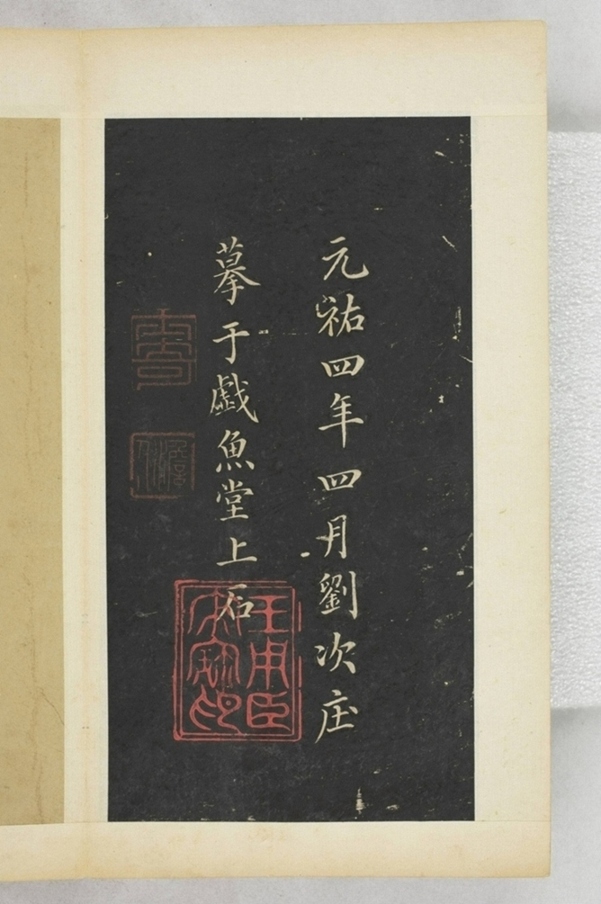 元祐四年四月劉次庄
摹于戱魚堂上石